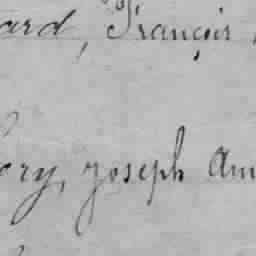 ard, François
ory, joseph Am